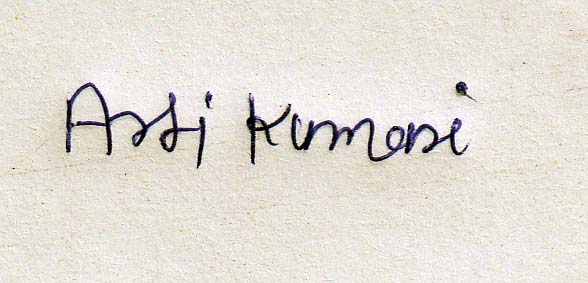 Arti Kumari